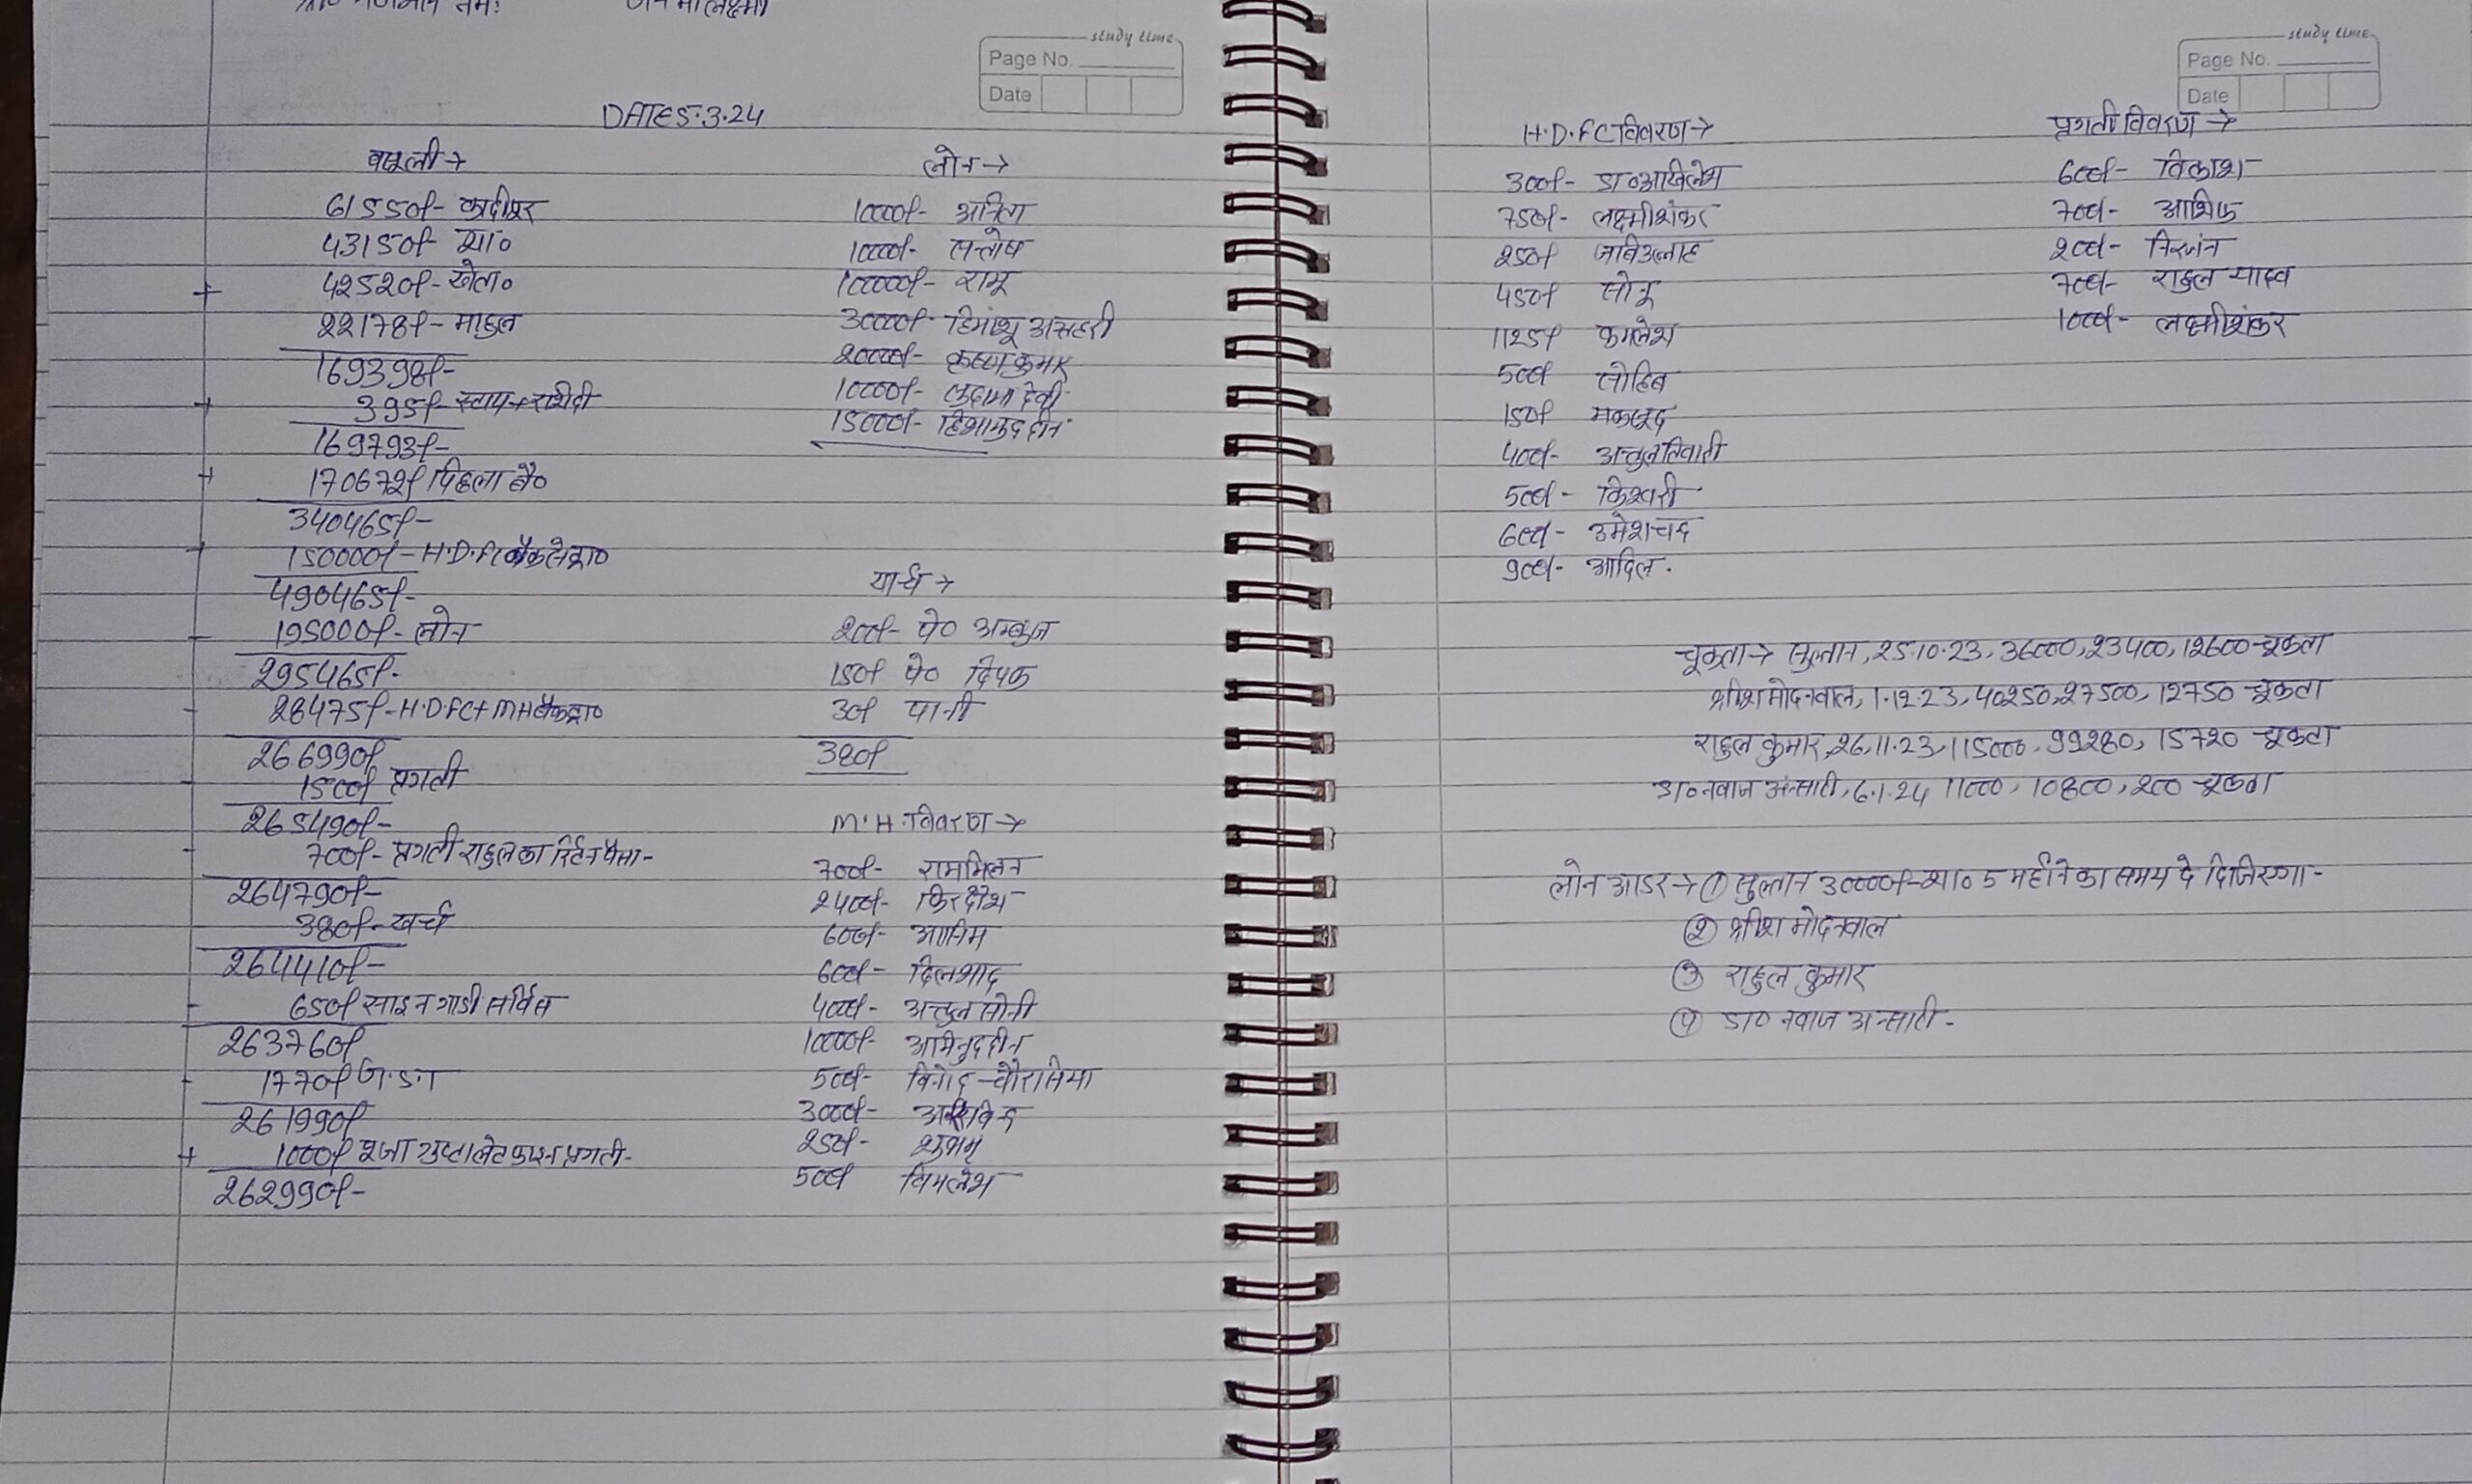 study time
Page No.
Date
DATE 5.3.24
वसूली→
61550/- कादीपुर
43150/- शा०
42520/- खेता०
22178/- माहुल
169398/-
395/- स्टाम्प+रसीदी
169793/-
170672/- पिछला बै०
340465/-
150000/- H.D.FC बैंक से प्रा०
490465/-
195000/- लोन
295465/-
28475/- H.D.FC+MH बैंक द्वा०
266990/-
1500/- प्रगती
265490/-
700/- प्रगती राहुल का रिर्टन पैसा-
264790/-
380/- खर्च
264410/-
650/- साइन गाडी सर्विस
263760/-
1770/- G.S.T
261990/-
1000/- पूजा गुप्टा प्रगती-
262990/-
लोन→
10000/- अनिता
10000/- सन्तोष
100000/- रामू
30000/- हिमांशू असहरी
20000/- कृष्ण कुमार
10000/- सुदामा देवी
15000/- हिशामुददीन
200/- पे०
150/- पे० दिपक
30/- पानी
380/-
M.H. विवरण→
700/- राममिलन
2400/-
600/-
600/- दिलशाद
4000/- अतुल सोनी
10000/- अमिनुददीन
500/- विनोद चौरासिया
3000/- अरविन्द
250/- शुभम
500/- विमलेश
study time
Page No.
Date
H.D.FC विवरण→
300/- डा० अखिलेश
750/- लक्ष्मीशंकर
250/-
450/- सोनू
1125/- कमलेश
500/- सोहिब
150/- मकसूद
400/- अतुल तिवारी
500/- किश्वरी
600/- उमेशचन्द
900/- आदिल.
प्रगती विवरण→
600/- विकाश
700/- आशिक
200/- निरजंन
700/- राहुल यादव
1000/- लक्ष्मीशंकर
चूकता→ सुल्तान, 25.10.23, 36000, 23400, 12600 चूकता
श्रीश मोदनवाल, 1.12.23, 40250, 27500, 12750 चूकता
राहुल कुमार, 26.11.23, 115000, 99280, 15720 चूकता
डा० नवाज अंन्सारी, 6.1.24 11000, 10800, 200 चूकता
लोन आडर→ ① सुल्तान 30000/- शा० 5 महीने का समय दे दिजिएगा-
② श्रीश मोदनवाल
③ राहुल कुमार
④ डा० नवाज अन्सारी-